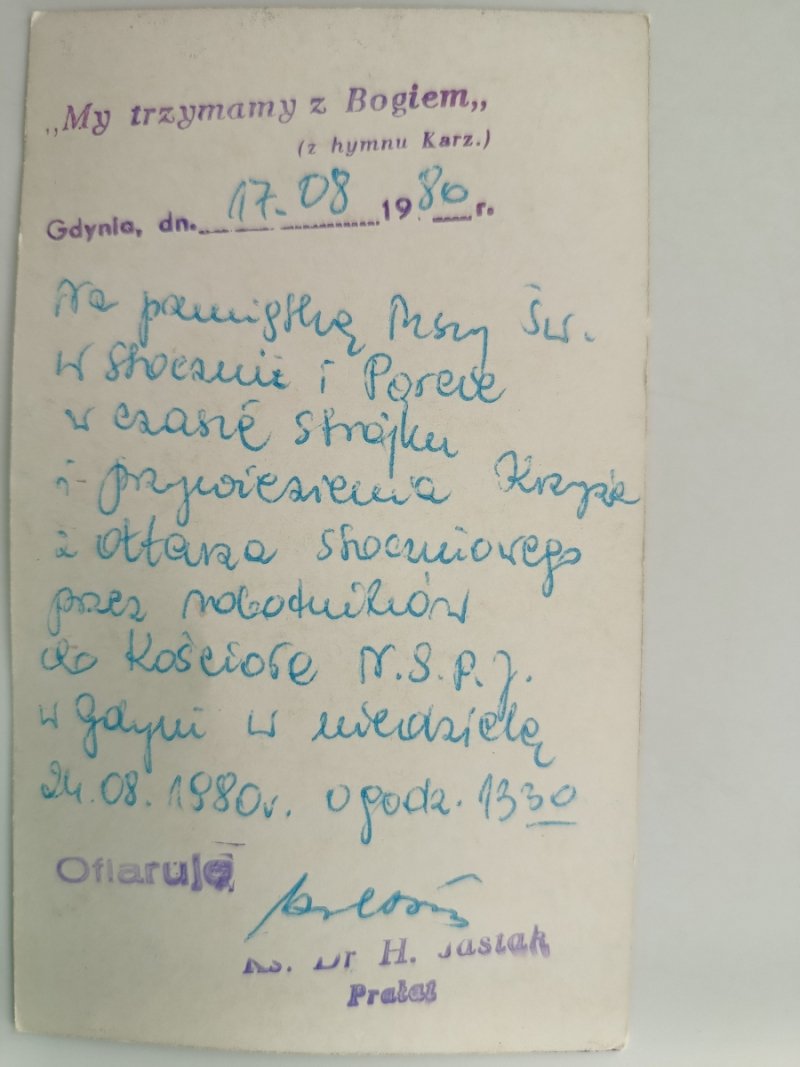 „My trzymamy z Bogiem„
(z hymnu Karz.)
Gdynia, dn. 17.08 1980 r.
Na pamiątkę Mszy Św.
w Stoczni i Porcie
w czasie strajku
i przywiezienia Krzyża
z ołtarza stoczniowego
przez robotników
do Kościoła N.S.P.J.
w Gdyni w niedzielę
24.08.1980r. o godz. 1330
Ofiaruję
Ks. Dr H. Jastak
Prałat